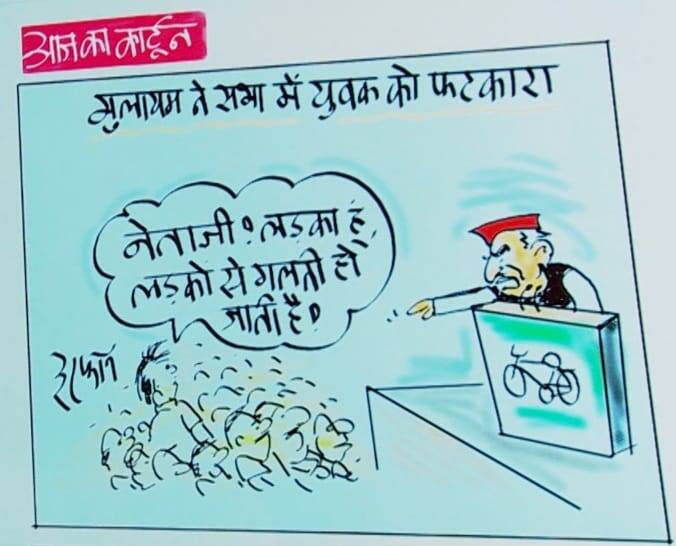 आज का कार्टून
मुलायम ने सभा में युवक को फटकारा
नेताजी! लड़का है,
लड़कों से गलती हो
जाती है!
इरफान